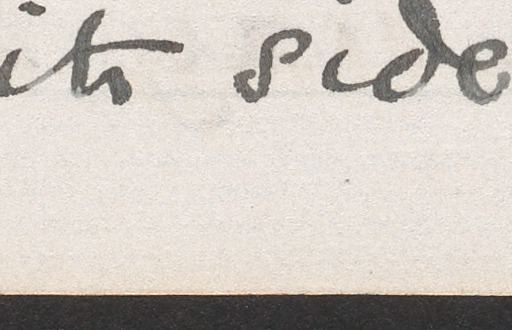 its side